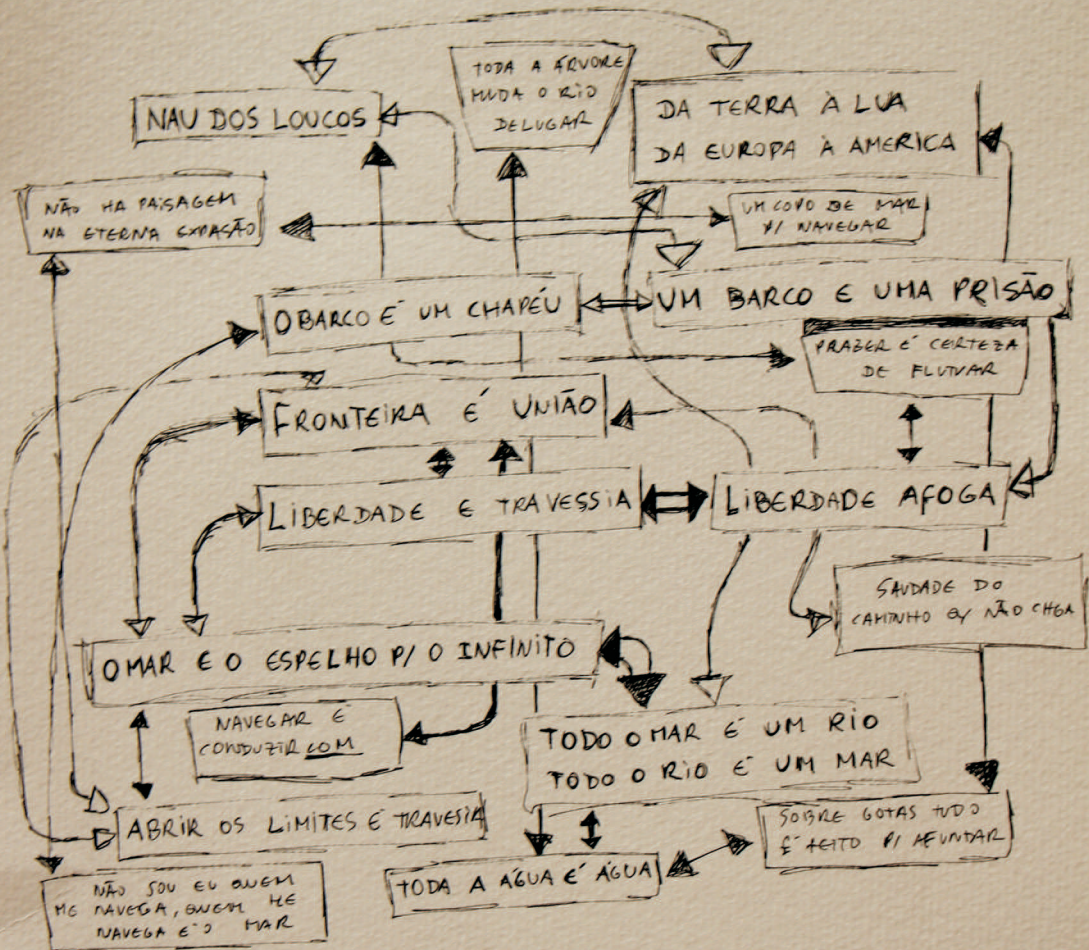 NAU DOS LOUCOS
TODA A ÁRVORE
MUDA O RIO
DELUGAR
DA TERRA À LUA
DA EUROPA À AMERICA
NÃO HA PAISAGEM
NA ETERNA EXPASÃO
UM COPO DE MAR
P/ NAVEGAR
O BARCO É UM CHAPÉU
UM BARCO E UMA PRISÃO
PRAZER É CERTEZA
DE FLUTUAR
FRONTEIRA É UNIÃO
LIBERDADE E TRAVESSIA
LIBERDADE AFOGA
SAUDADE DO
CAMINHO Q/ NÃO CHGA
O MAR E O ESPELHO P/ O INFINITO
NAVEGAR É
CONDUZIR COM
TODO O MAR É UM RIO
TODO O RIO É UM MAR
ABRIR OS LIMITES É TRAVESIA
SOBRE GOTAS TUDO
É FEITO P/ AFUNDAR
TODA A ÁGUA É ÁGUA
NÃO SOU EU QUEM
ME NAVEGA, QUEM ME
NAVEGA É O MAR